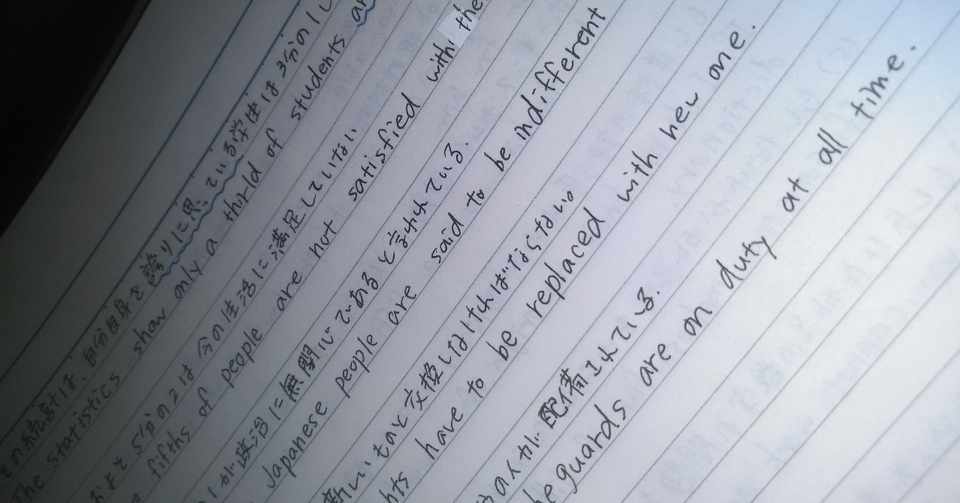 その統計は、自分自身を誇りに思っている学生は3分の1し
The statistics show only a third of students ar
およそ5分の2は今の生活に満足していない
fifths of people are not satisfied with the
政治に無関心であると言われている.
Japanese people are said to be indifferent
新しいものと交換しなければならない。
hts have to be replaced with new one.
の人が配備されている.
he guards are on duty at all time.